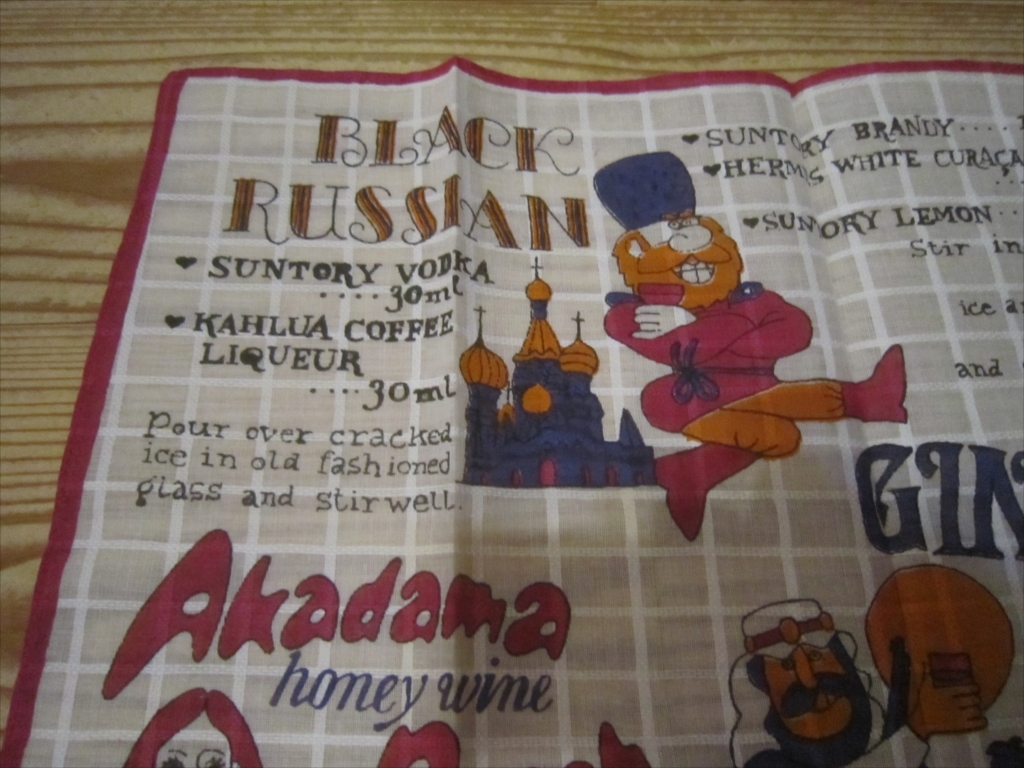 BLACK
RUSSIAN
SUNTORY VODKA
....30ml
KAHLUA COFFEE
LIQUEUR
....30ml
Pour over cracked
ice in old fashioned
glass and stir well.
SUNTORY BRANDY....
HERMES WHITE
SUNTORY LEMON..
Stir in
ice
and
Akadama
honey wine